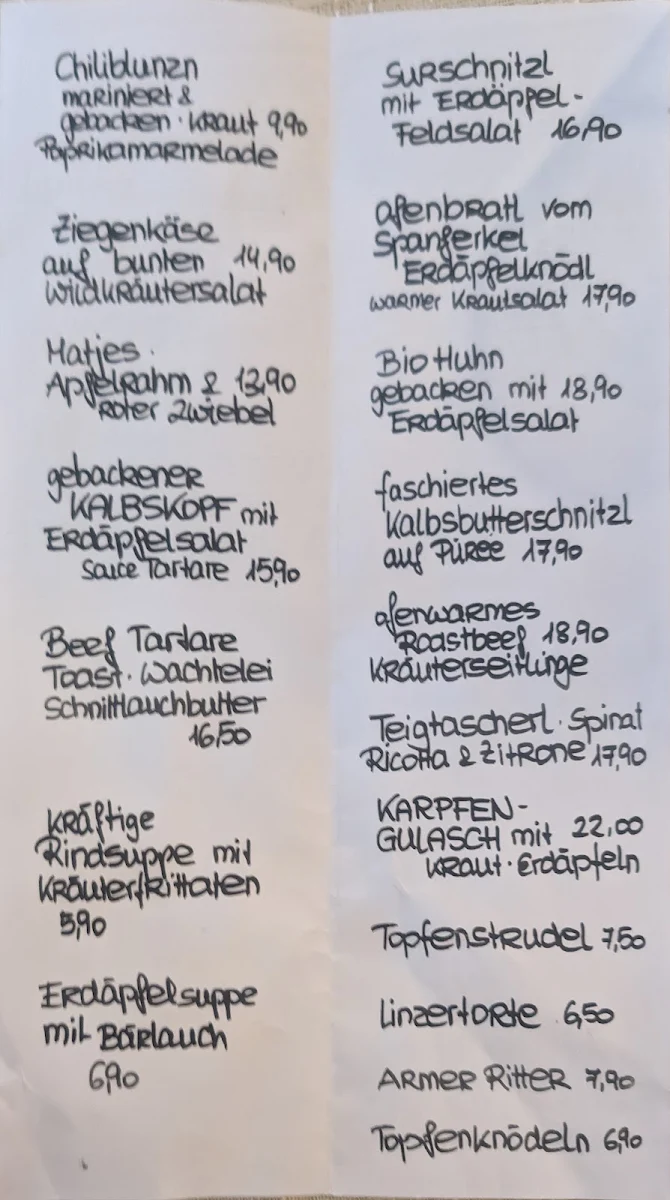 Chiliblunzn
mariniert &
gebacken · Kraut 9,90
Paprikamarmelade
Ziegenkäse
auf bunten 14,90
Wildkräutersalat
Matjes ·
Apfelrahm & 13,90
Roter Zwiebel
gebackener
KALBSKOPF mit
Erdäpfelsalat
Sauce Tartare 15,90
Beef Tartare
Toast · Wachtelei
Schnittlauchbutter
16,50
kräftige
Rindsuppe mit
Kräuterfrittaten
5,90
Erdäpfelsuppe
mit Bärlauch
6,90
Surschnitzl
mit Erdäpfel-
Feldsalat 16,90
Ofenbratl vom
Spanferkel
Erdäpfelknödl
warmer Krautsalat 17,90
Bio Huhn
gebacken mit 18,90
Erdäpfelsalat
faschiertes
Kalbsbutterschnitzl
auf Püree 17,90
ofenwarmes
Roastbeef 18,90
Kräuterseitlinge
Teigtascherl · Spinat
Ricotta & Zitrone 17,90
KARPFEN-
GULASCH mit 22,00
Kraut · Erdäpfeln
Topfenstrudel 7,50
Linzertorte 6,50
Armer Ritter 7,90
Topfenknödeln 6,90